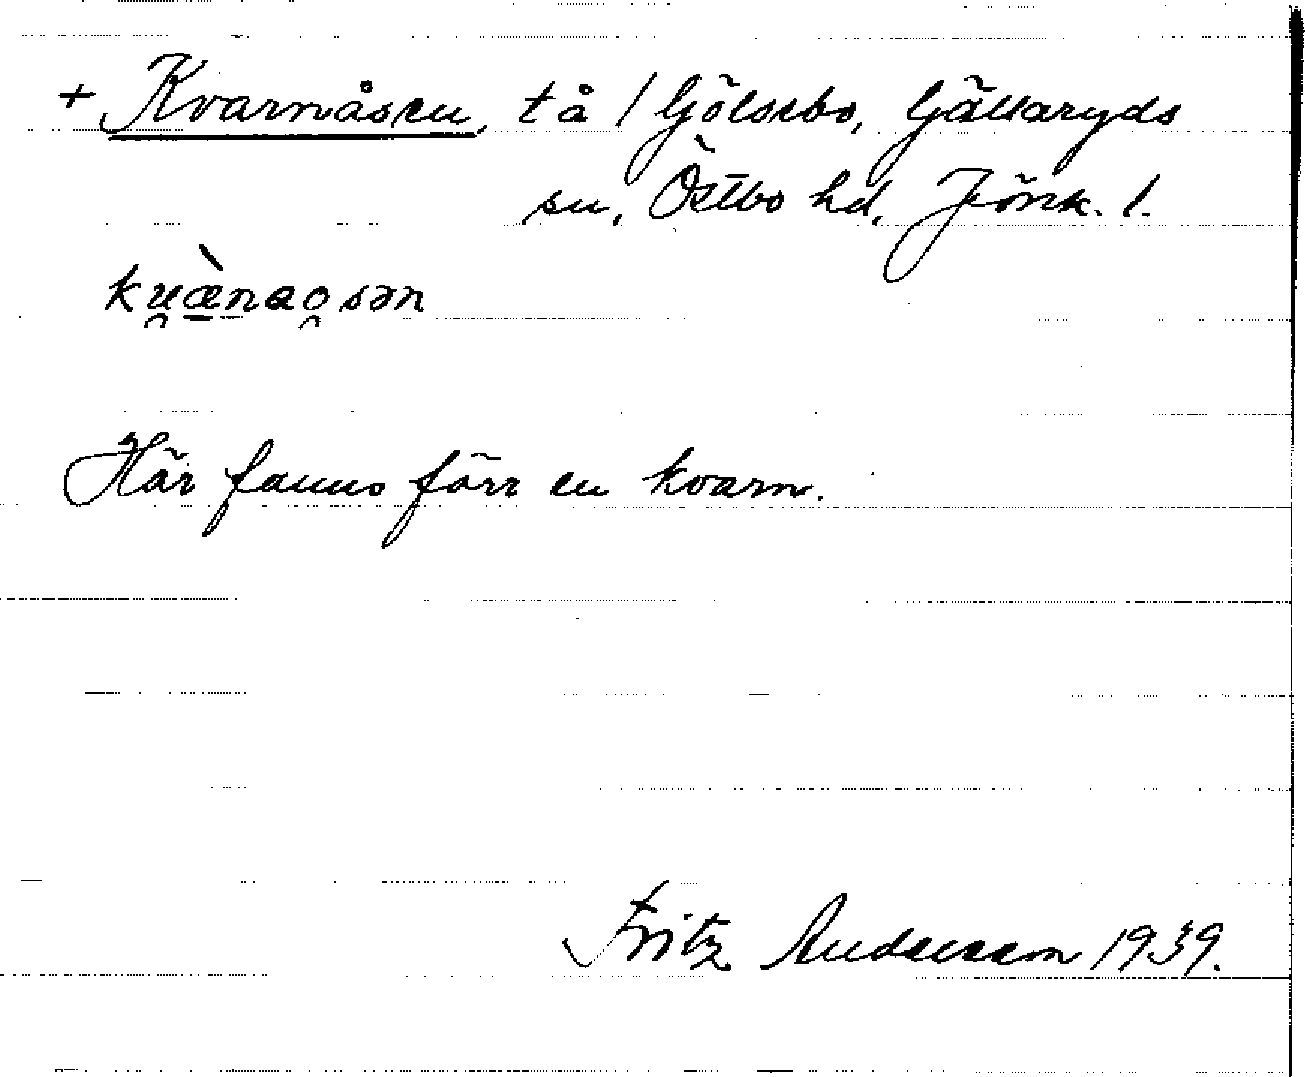 + Kvarnåsen, tå / Gölsebo, Gällaryds
sn, Östbo hd, Jönk. l.
ku̯æ̀nao̯sən
Här fanns förr en kvarn.
Fritz Andersson 1939.